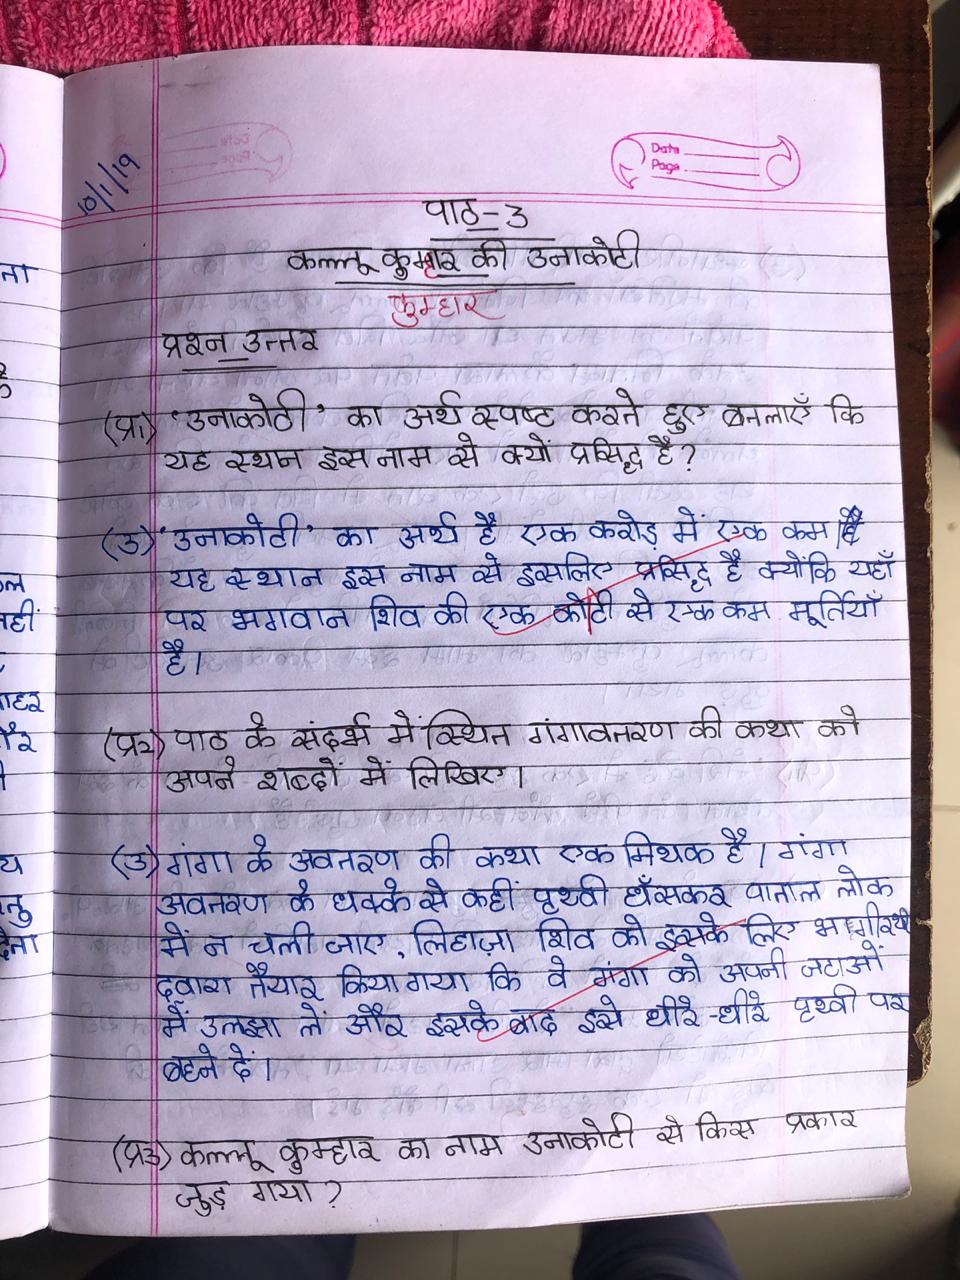 10/1/19
Data
Page
पाठ-3
कल्लू कुम्हार की उनाकोटी
कुम्हार
प्रश्न उत्तर
(प्र1) 'उनाकोटी' का अर्थ स्पष्ट करते हुए बतलाएँ कि
यह स्थान इस नाम से क्यों प्रसिद्ध है?
(उ) 'उनाकोटी' का अर्थ है एक करोड़ में एक कम।
यह स्थान इस नाम से इसलिए प्रसिद्ध है क्योंकि यहाँ
पर भगवान शिव की एक कोटी से एक कम मूर्तियाँ
है।
(प्र2) पाठ के संदर्भ में स्थित गंगावतरण की कथा को
अपने शब्दों में लिखिए।
(उ) गंगा के अवतरण की कथा एक मिथक है। गंगा
अवतरण के धक्के से कहीं पृथ्वी धँसकर पाताल लोक
में न चली जाए, लिहाज़ा शिव को इसके लिए भागीरथी
द्वारा तैयार किया गया कि वे गंगा को अपनी जटाओं
में उलझा लें और इसके बाद इसे धीरे-धीरे पृथ्वी पर
बहने दें।
(प्र3) कल्लू कुम्हार का नाम उनाकोटी से किस प्रकार
जुड़ गया?